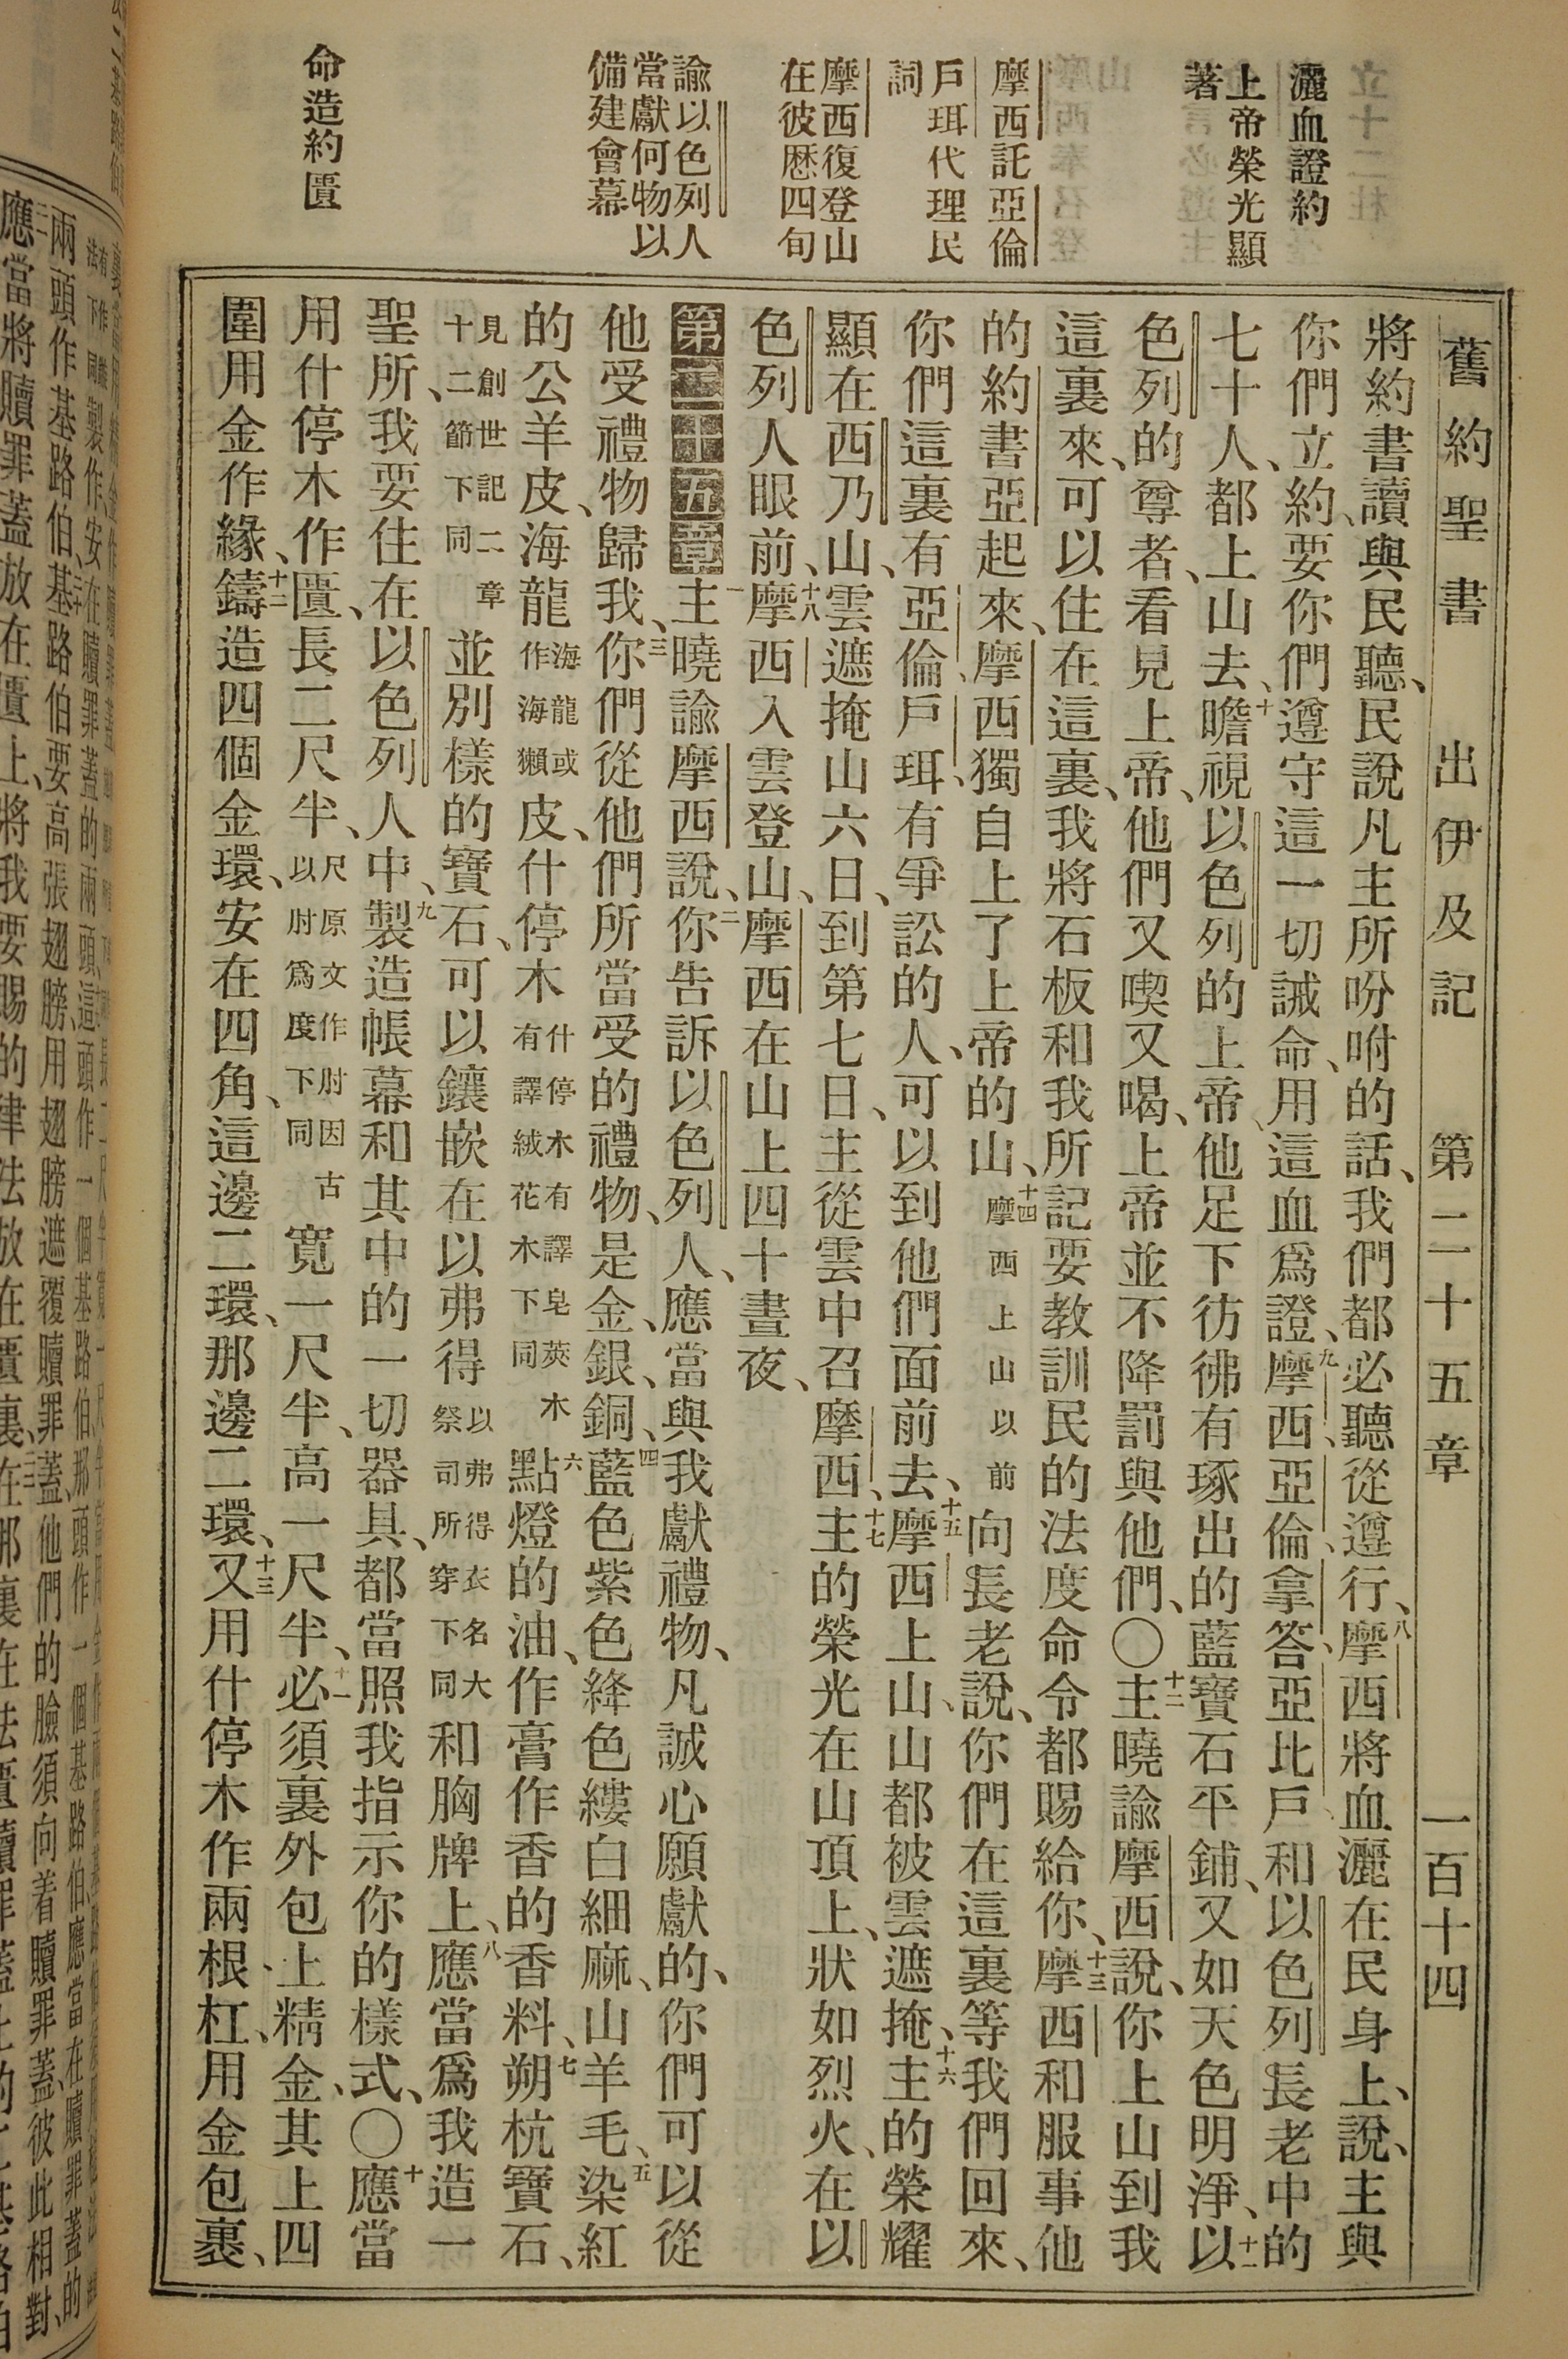 舊約聖書 出伊及記 第二十五章 一百十四
灑血證約
上帝榮光顯
著
摩西託亞倫
戶珥代理民
詞
摩西復登山
在彼歷四旬
諭以色列人
當獻何物以
備建會幕
命造約匱
將約書讀與民聽、民說凡主所吩咐的話、我們都必聽從遵行、八摩西將血灑在民身上、說、主與
你們立約、要你們遵守這一切誡命、用這血爲證、九摩西、亞倫、拿答、亞比戶、和以色列長老中的
七十人、都上山去、十瞻視以色列的上帝、他足下彷彿有琢出的藍寶石平鋪、又如天色明淨、十一以
色列的尊者、看見上帝、他們又喫又喝、上帝並不降罰與他們、〇十二主曉諭摩西說、你上山到我
這裏來、可以住在這裏、我將石板和我所記要教訓民的法度命令都賜給你、十三摩西和服事他
的約書亞起來、摩西獨自上了上帝的山、十四摩西上山以前向長老說、你們在這裏等我們回來、
你們這裏有亞倫、戶珥、有爭訟的人、可以到他們面前去、十五摩西上山、山都被雲遮掩、十六主的榮耀
顯在西乃山、雲遮掩山六日、到第七日、主從雲中召摩西、十七主的榮光在山頂上、狀如烈火、在以
色列人眼前、十八摩西入雲登山、摩西在山上四十晝夜、
第二十五章一主曉諭摩西說、二你告訴以色列人、應當與我獻禮物、凡誠心願獻的、你們可以從
他受禮物歸我、三你們從他們所當受的禮物、是金、銀、銅、四藍色紫色絳色縷白細麻、山羊毛、五染紅
的公羊皮、海龍海龍或作海獺皮、什停木什停木有譯皂莢木有譯絨花木下同六點燈的油、作膏作香的香料、七朔杭寶石、
見創世記二章十二節下同並別樣的寶石、可以鑲嵌在以弗得以弗得衣名大祭司所穿下同和胸牌上、八應當爲我造一
聖所、我要住在以色列人中、九製造帳幕和其中的一切器具、都當照我指示你的樣式、〇十應當
用什停木作匱、長二尺半、尺原文作肘因古以肘爲度下同寬一尺半、高一尺半、十一必須裏外包上精金、其上四
圍用金作緣、十二鑄造四個金環、安在四角、這邊二環、那邊二環、十三又用什停木作兩根杠、用金包裹、
兩頭作基路伯、基路伯要高張翅膀、用翅膀遮覆贖罪蓋、他們的臉須向着贖罪蓋、彼此相對、
應當將贖罪蓋放在匱上、將我要賜的律法放在匱裏、